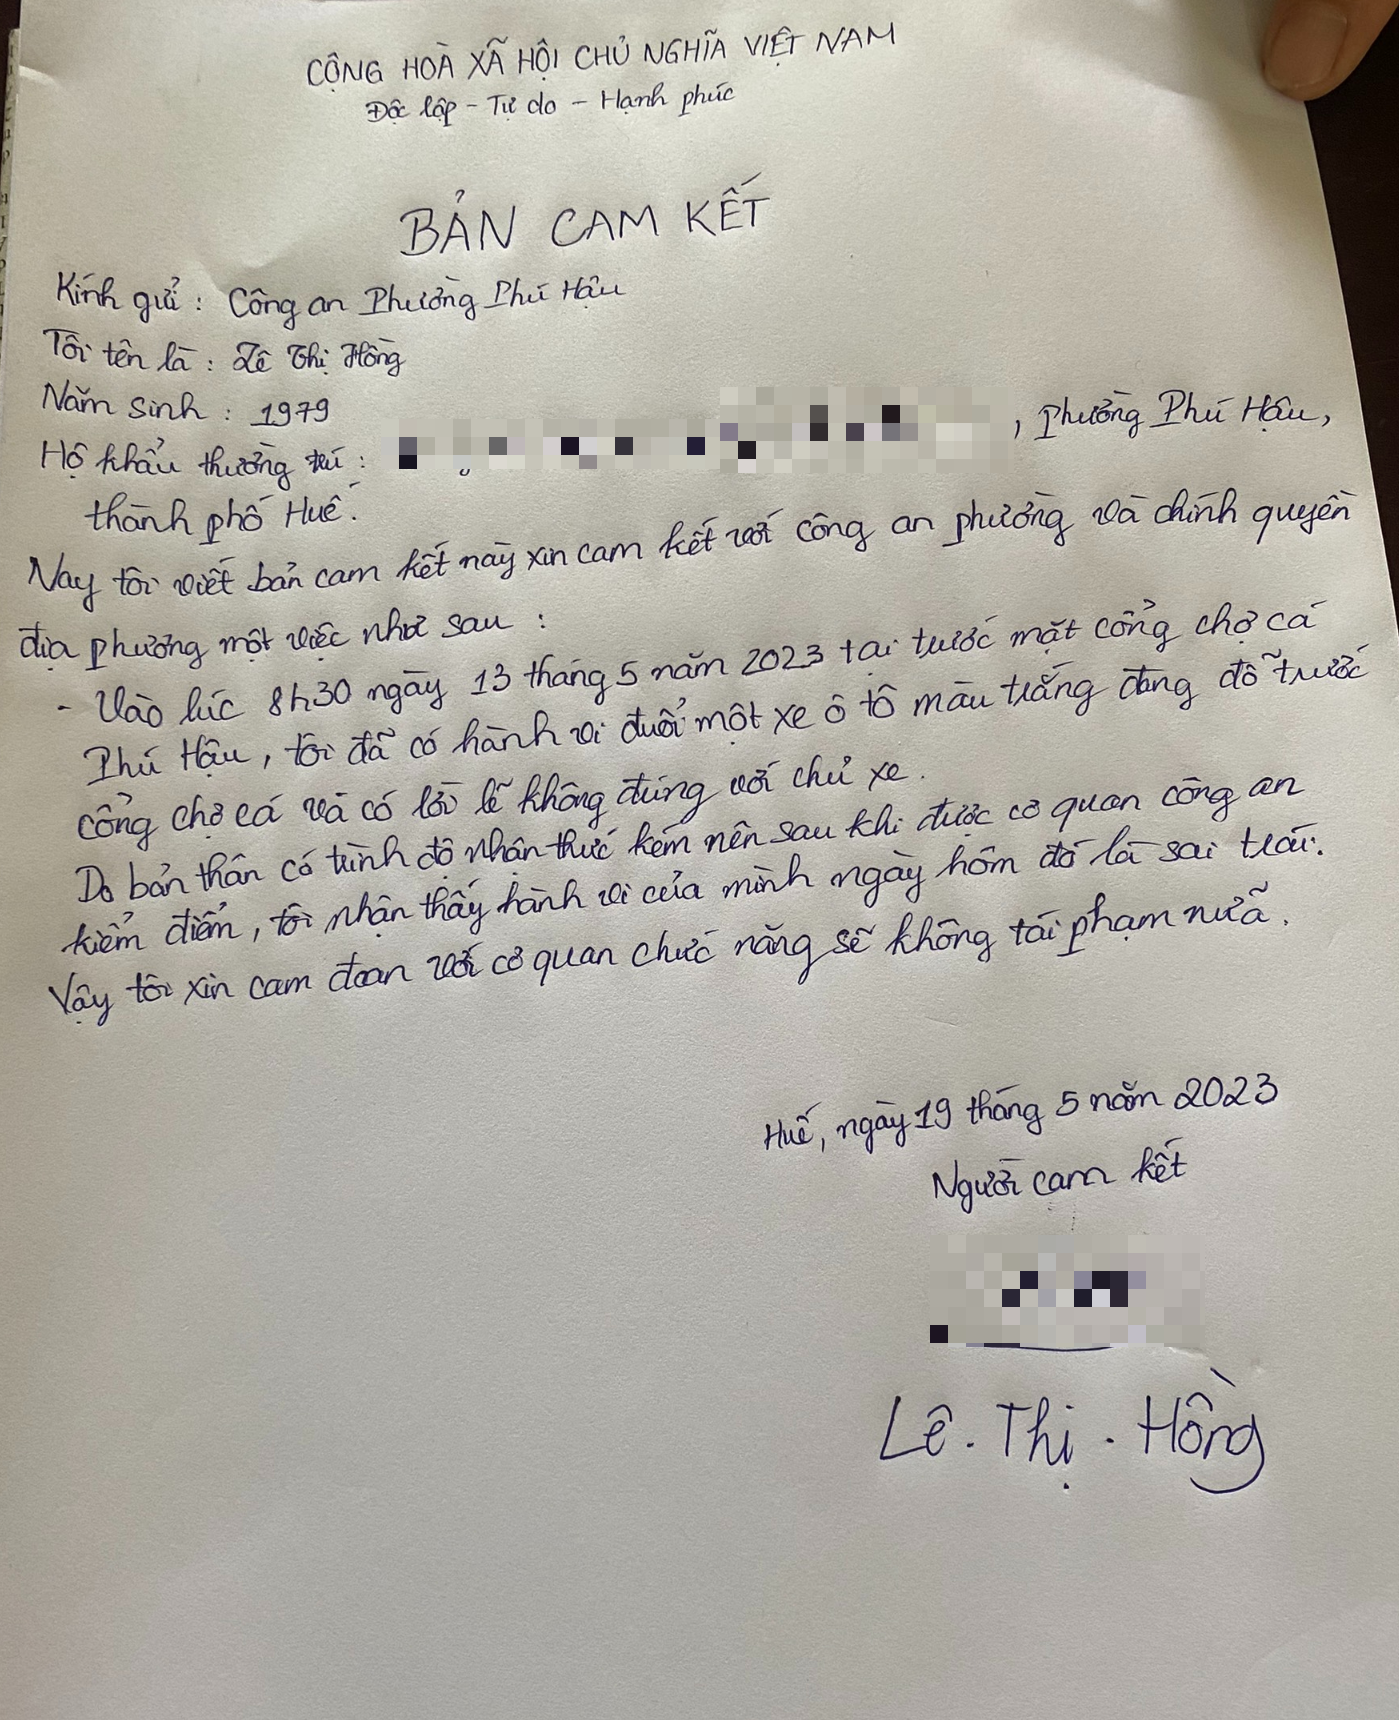 CỘNG HOÀ XÃ HỘI CHỦ NGHĨA VIỆT NAM
Độc lập - Tự do - Hạnh phúc
BẢN CAM KẾT
Kính gửi : Công an Phường Phú Hậu
Tôi tên là : Lê Thị Hồng
Năm sinh : 1979
Hộ khẩu thường trú : , Phường Phú Hậu,
thành phố Huế.
Nay tôi viết bản cam kết này xin cam kết với công an phường và chính quyền
địa phương một việc như sau :
- Vào lúc 8h30 ngày 13 tháng 5 năm 2023 tại trước mặt cổng chợ cá
Phú Hậu, tôi đã có hành vi đuổi một xe ô tô màu trắng đang đỗ trước
cổng chợ cá và có lời lẽ không đúng với chủ xe.
Do bản thân có trình độ nhận thức kém nên sau khi được cơ quan công an
kiểm điểm, tôi nhận thấy hành vi của mình ngày hôm đó là sai trái.
Vậy tôi xin cam đoan với cơ quan chức năng sẽ không tái phạm nữa.
Huế, ngày 19 tháng 5 năm 2023
Người cam kết
Lê . Thị . Hồng